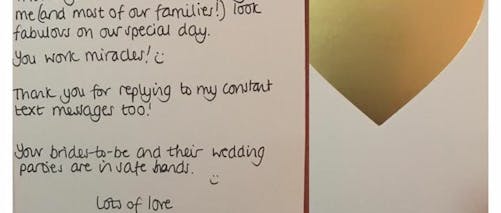 me (and most of our families!) look
fabulous on our special day.
You work miracles! :)
Thank you for replying to my constant
text messages too!
Your brides-to-be and their wedding
parties are in safe hands.
:)
Lots of love